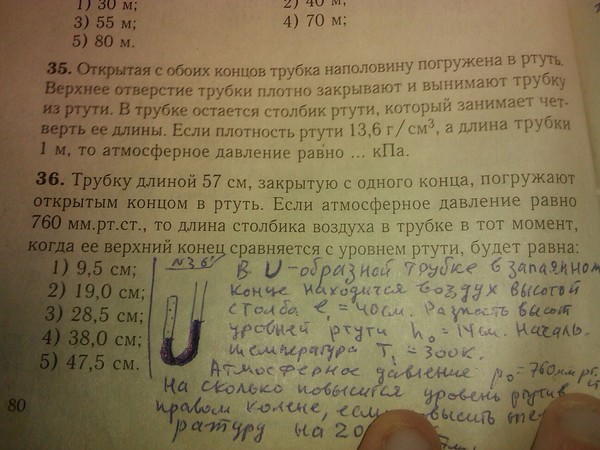 1) 30 м; 2) 40 м;
3) 55 м; 4) 70 м;
5) 80 м.
35. Открытая с обоих концов трубка наполовину погружена в ртуть.
Верхнее отверстие трубки плотно закрывают и вынимают трубку
из ртути. В трубке остается столбик ртути, который занимает чет-
верть ее длины. Если плотность ртути 13,6 г/см³, а длина трубки
1 м, то атмосферное давление равно ... кПа.
36. Трубку длиной 57 см, закрытую с одного конца, погружают
открытым концом в ртуть. Если атмосферное давление равно
760 мм.рт.ст., то длина столбика воздуха в трубке в тот момент,
когда ее верхний конец сравняется с уровнем ртути, будет равна:
1) 9,5 см;
2) 19,0 см;
3) 28,5 см;
4) 38,0 см;
5) 47,5 см.
№36
В U-образной трубке в запаянном
конце находится воздух высотой
столба ℓ₁ = 40см. Разность высот
уровней ртути h₀ = 14см. Началь.
температура T₁ = 300К.
Атмосферное давление p₀ = 760мм рт.
ст
На сколько повысится уровень ртути в
правом колене, если
ратуру на 20
80